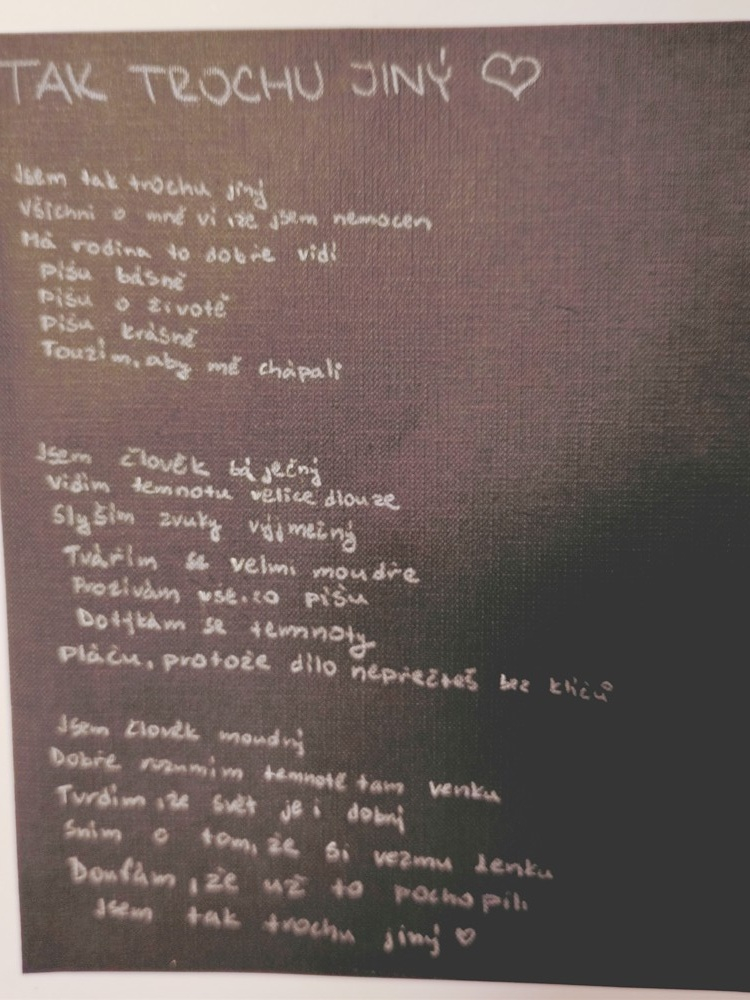 TAK TROCHU JINÝ ♡
Jsem tak trochu jiný
Všichni o mně ví, že jsem nemocen,
Má rodina to dobře vidí
píšu básně
píšu o životě
píšu krásně
Toužím, aby mě chápali
Jsem člověk báječný
Vidím temnotu velice dlouze
Slyším zvuky vyjímečný
Tvářím se velmi moudře
Prožívám vše, co píšu
Dotýkám se temnoty
pláču, protože dílo nepřečteš bez klíčů
Jsem člověk moudrý
Dobře rozumím temnotě tam venku
Tvrdím, že svět je i dobrý
Sním o tom, že si vezmu Lenku
Doufám, že už to pochopili
Jsem tak trochu jiný ♡